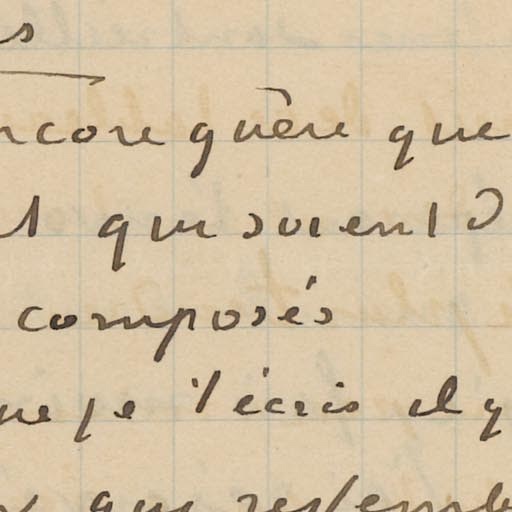 s
ncore guère que
t qui soient d
composés
ue je t'écris il y
qui ressemb